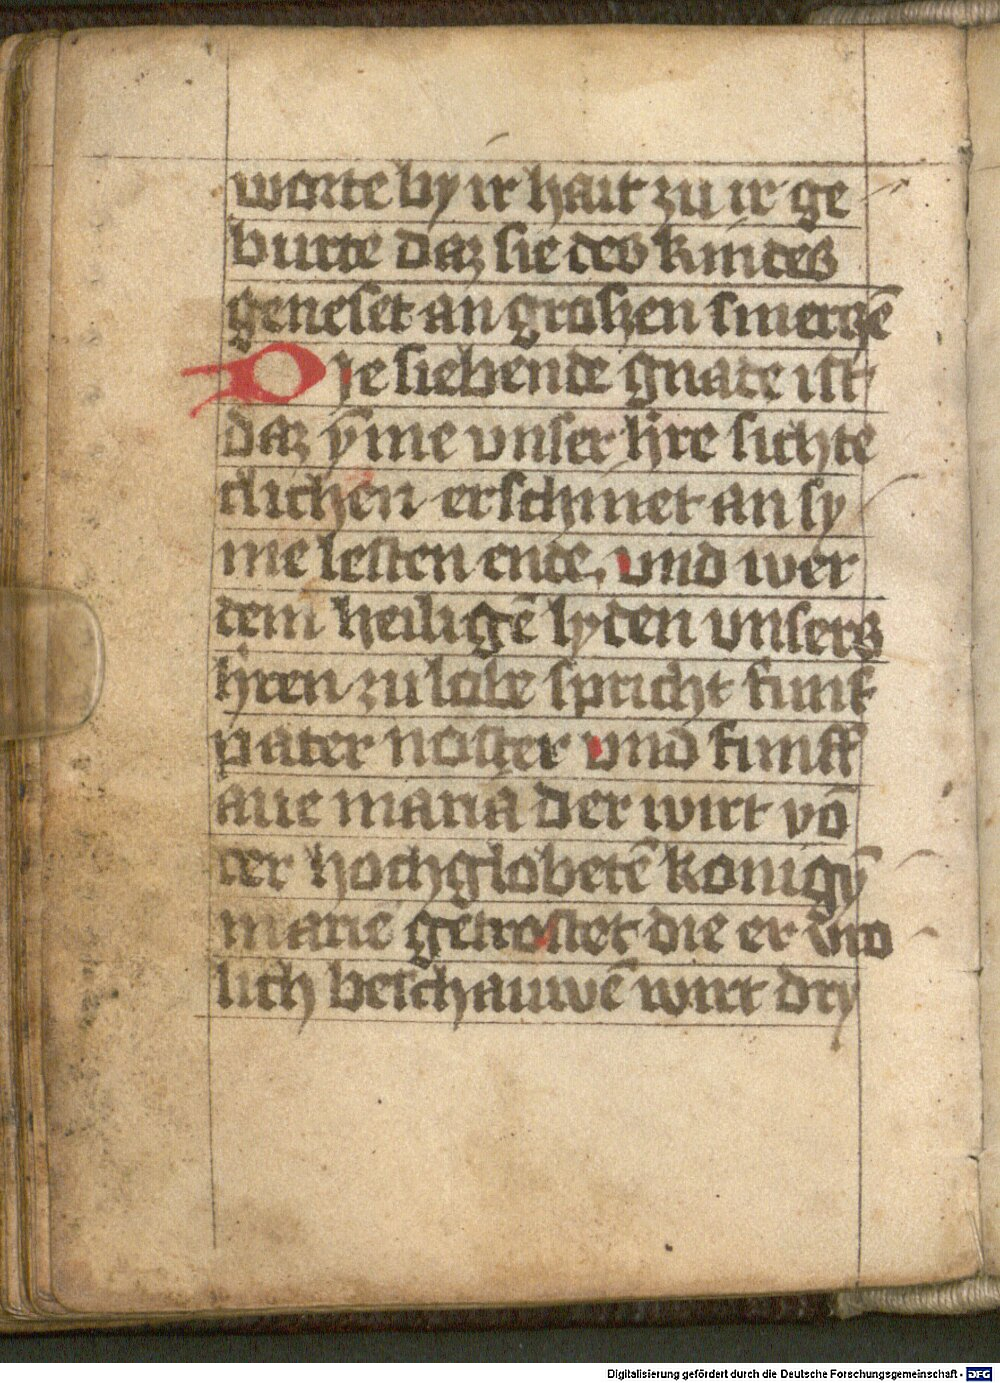 worte by ir hait zu ir ge
burte daz sie des kindes
geneset an groszen smerczē
Die siebende gnade ist
daz ẏme vnser hre sichte
clichen erschinet an sy
me lesten ende, vnd wer
dem heiligē lyden vnsers
hren zu lobe spricht funf
pater noster vnd funff
aue maria der wirt vō
der hochglobetē konigȳ
marie getrostet die er vro
lich beschauwē wirt dry
Digitalisierung gefördert durch die Deutsche Forschungsgemeinschaft - DFG